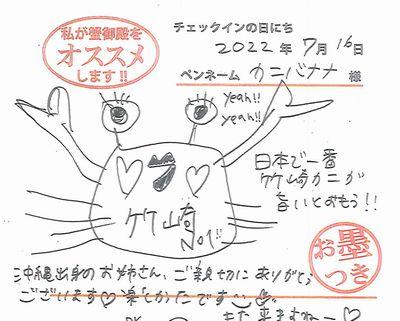 私が蟹御殿を
オススメ
します!!
チェックインの日にち
2022年 7月 16日
ペンネーム カニバナナ 様
yeah!!
yeah!!
日本で一番
竹崎カニが
旨いとおもう!!
竹崎
No1!!
お墨
つき
沖縄出身のお姉さん、ご親切にありがとう
ございます♡楽しかったです
また来ますねー♡